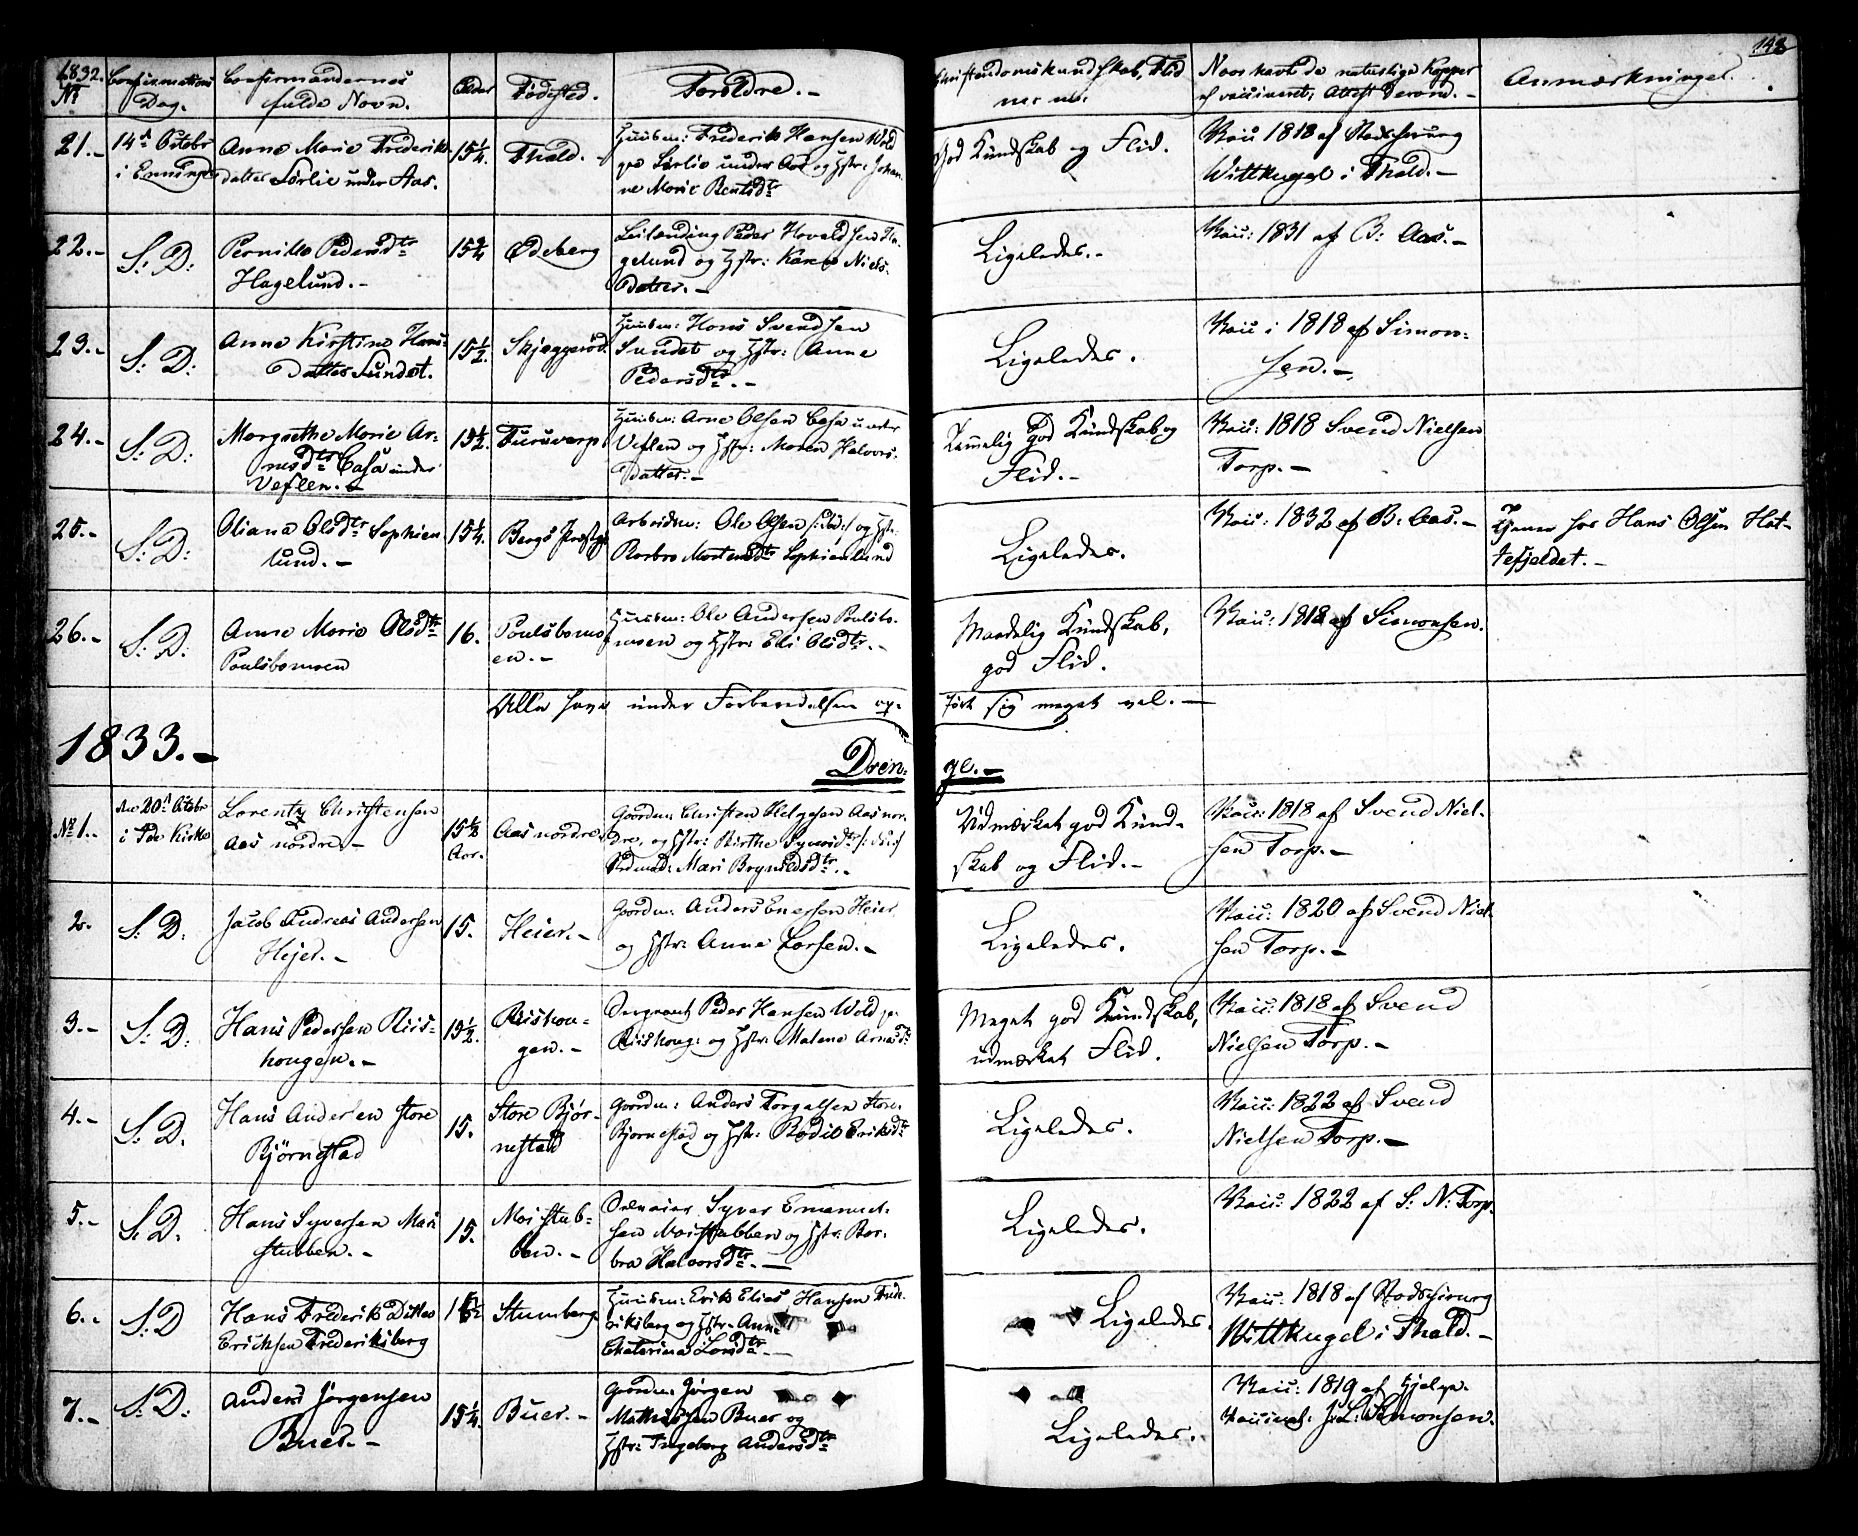 1832.
No
Confirmations
Dag.
Confirmandernes
fulde Navn.
Alder
Fødested.
Forældre. -
Christendomskundskab, Flid
Naar havt de naturlige Kopper
el vaccineret, Attest derom. -
Anmærkninger.
148
21. -
14de Octobr
i Enningd
Anne Marie Frederiks-
datter Sørlie under Aas.
15 1/4.
Fhald. -
Huusm: Frederik Hansen Wold
paa Sørlie under Aas og Hstr: Johan-
ne Marie Bentsdtr
God Kundskab og Flid.
Vacc 1818 af Stadschirurg
Wittkugel i Fhald. -
22. -
S: D:
Pernille Pedersdtr
Hagelund. -
15 3/4
Ødeberg
Leilending Peder Hovaldsen Ha-
gelund og Hstr: Karen Niels-
Datter. -
Ligeledes. -
Vacc: 1831 af B: Aas. -
23. -
S: D:
Anne Kirstine Hans-
Datter Sundet.
15 1/2.
Skjeggerød.
Huusm: Hans Svendsen
Sundet og Hstr: Anne
Pedersdtr. -
Ligeledes.
Vacc i 1818 af Simon-
sen. -
24. -
S: D:
Margrethe Marie Ar-
nesdtr Casa under
Veflen. -
15 1/2.
Furuvarp.
Huusm: Arne Olsen Casa under
Veflen og Hstr: Maren Halvors-
Datter. -
Temmelig god Kundskab og
Flid. -
Vacc: 1818 Svend Nielsen
Torp. -
25. -
S: D:
Oliana Olsdtr Sophien
lund. -
15 1/4.
Bergs Præstgj
Arbeidsm: Ole Olsen /:død:/ og Hstr:
Barbro Mortensdtr Sophienlund
Ligeledes.
Vacc: 1832 af B: Aas. -
Tjener hos Hans Olsen Hat-
tefjeldet. -
26. -
S: D:
Anne Marie Olsdtr
Poulsbomoen
16.
Poulsbomo
en. -
Huusm: Ole Andersen Poulsbo-
moen og Hstr: Eli Olsdtr. -
Maadelig Kundskab,
god Flid.
Vacc: 1818 af Simonsen.
Alle have under Forberedelsen op-
ført sig meget vel. -
1833. -
Dren-
ge. -
No 1. -
den 20de Octobr
i Idde Kirke
Lorentz Christensen
Aas nordre. -
15 1/2
Aar.
Aas nordre
Gaardm: Christen Helgesen Aas nor-
dre, og Hstr: Birthe Syversdtr /:død:/
Mari Brynildsdtr. -
Udmærket god Kund-
skab og Flid. -
Vacc: 1818 af Svend Niel-
sen Torp. -
2.
S: D:
Jacob Andreas Andersen
Hejer. -
15.
Heier. -
Gaardm: Anders Enersen Heier
og Hstr: Anne Larsen. -
Ligeledes.
Vacc: 1820 af Svend Niel-
sen Torp. -
3. -
S: D:
Hans Pedersen Riis-
hougen. -
15 1/2.
Riishou-
gen. -
Sergeant Peder Hansen Wold pa
Riishoug: og Hstr: Malene Arnesdtr
Meget god Kundskab,
udmærket Flid.
Vacc: 1818 af Svend
Nielsen Torp. -
4. -
S: D.
Hans Andersen store
Bjørnstad
15.
Store Bjør-
nestad
Gaardm: Anders Torgalsen Store
Bjørnestad og Hstr: Bodil Eriksdtr
Ligeledes.
Vacc: 1822 af Svend
Nielsen Torp. -
5. -
S: D.
Hans Syversen Moi
stubben. -
15.
Moistub-
ben. -
Syver Emanuel-
sen Moistubben og Hstr: Bar-
bra Halvorsdtr. -
Ligeledes.
Vacc: 1822 af S: N: Torp.
6. -
S: D
Hans Frederik Ditlev
Ericksen Frederiksberg
15 1/2
Stumberg
Huusm: Erik Elias Hansen Fred-
eriksberg og Hstr: Anne
Chaterina Larsdtr. -
Ligeledes.
Vacc: 1818 af Stadschirurg
Wittkugel i Fhald. -
7. -
S: D:
Anders Jørgensen
Buer. -
15 1/4.
Buer. -
Gaardm: Jørgen
Mathissen Buer og
Hstr: Ingeborg Andersdtr
Ligeledes. -
Vacc: 1819 af Hjelpe-
Vaccinat: J: L: Simonsen.